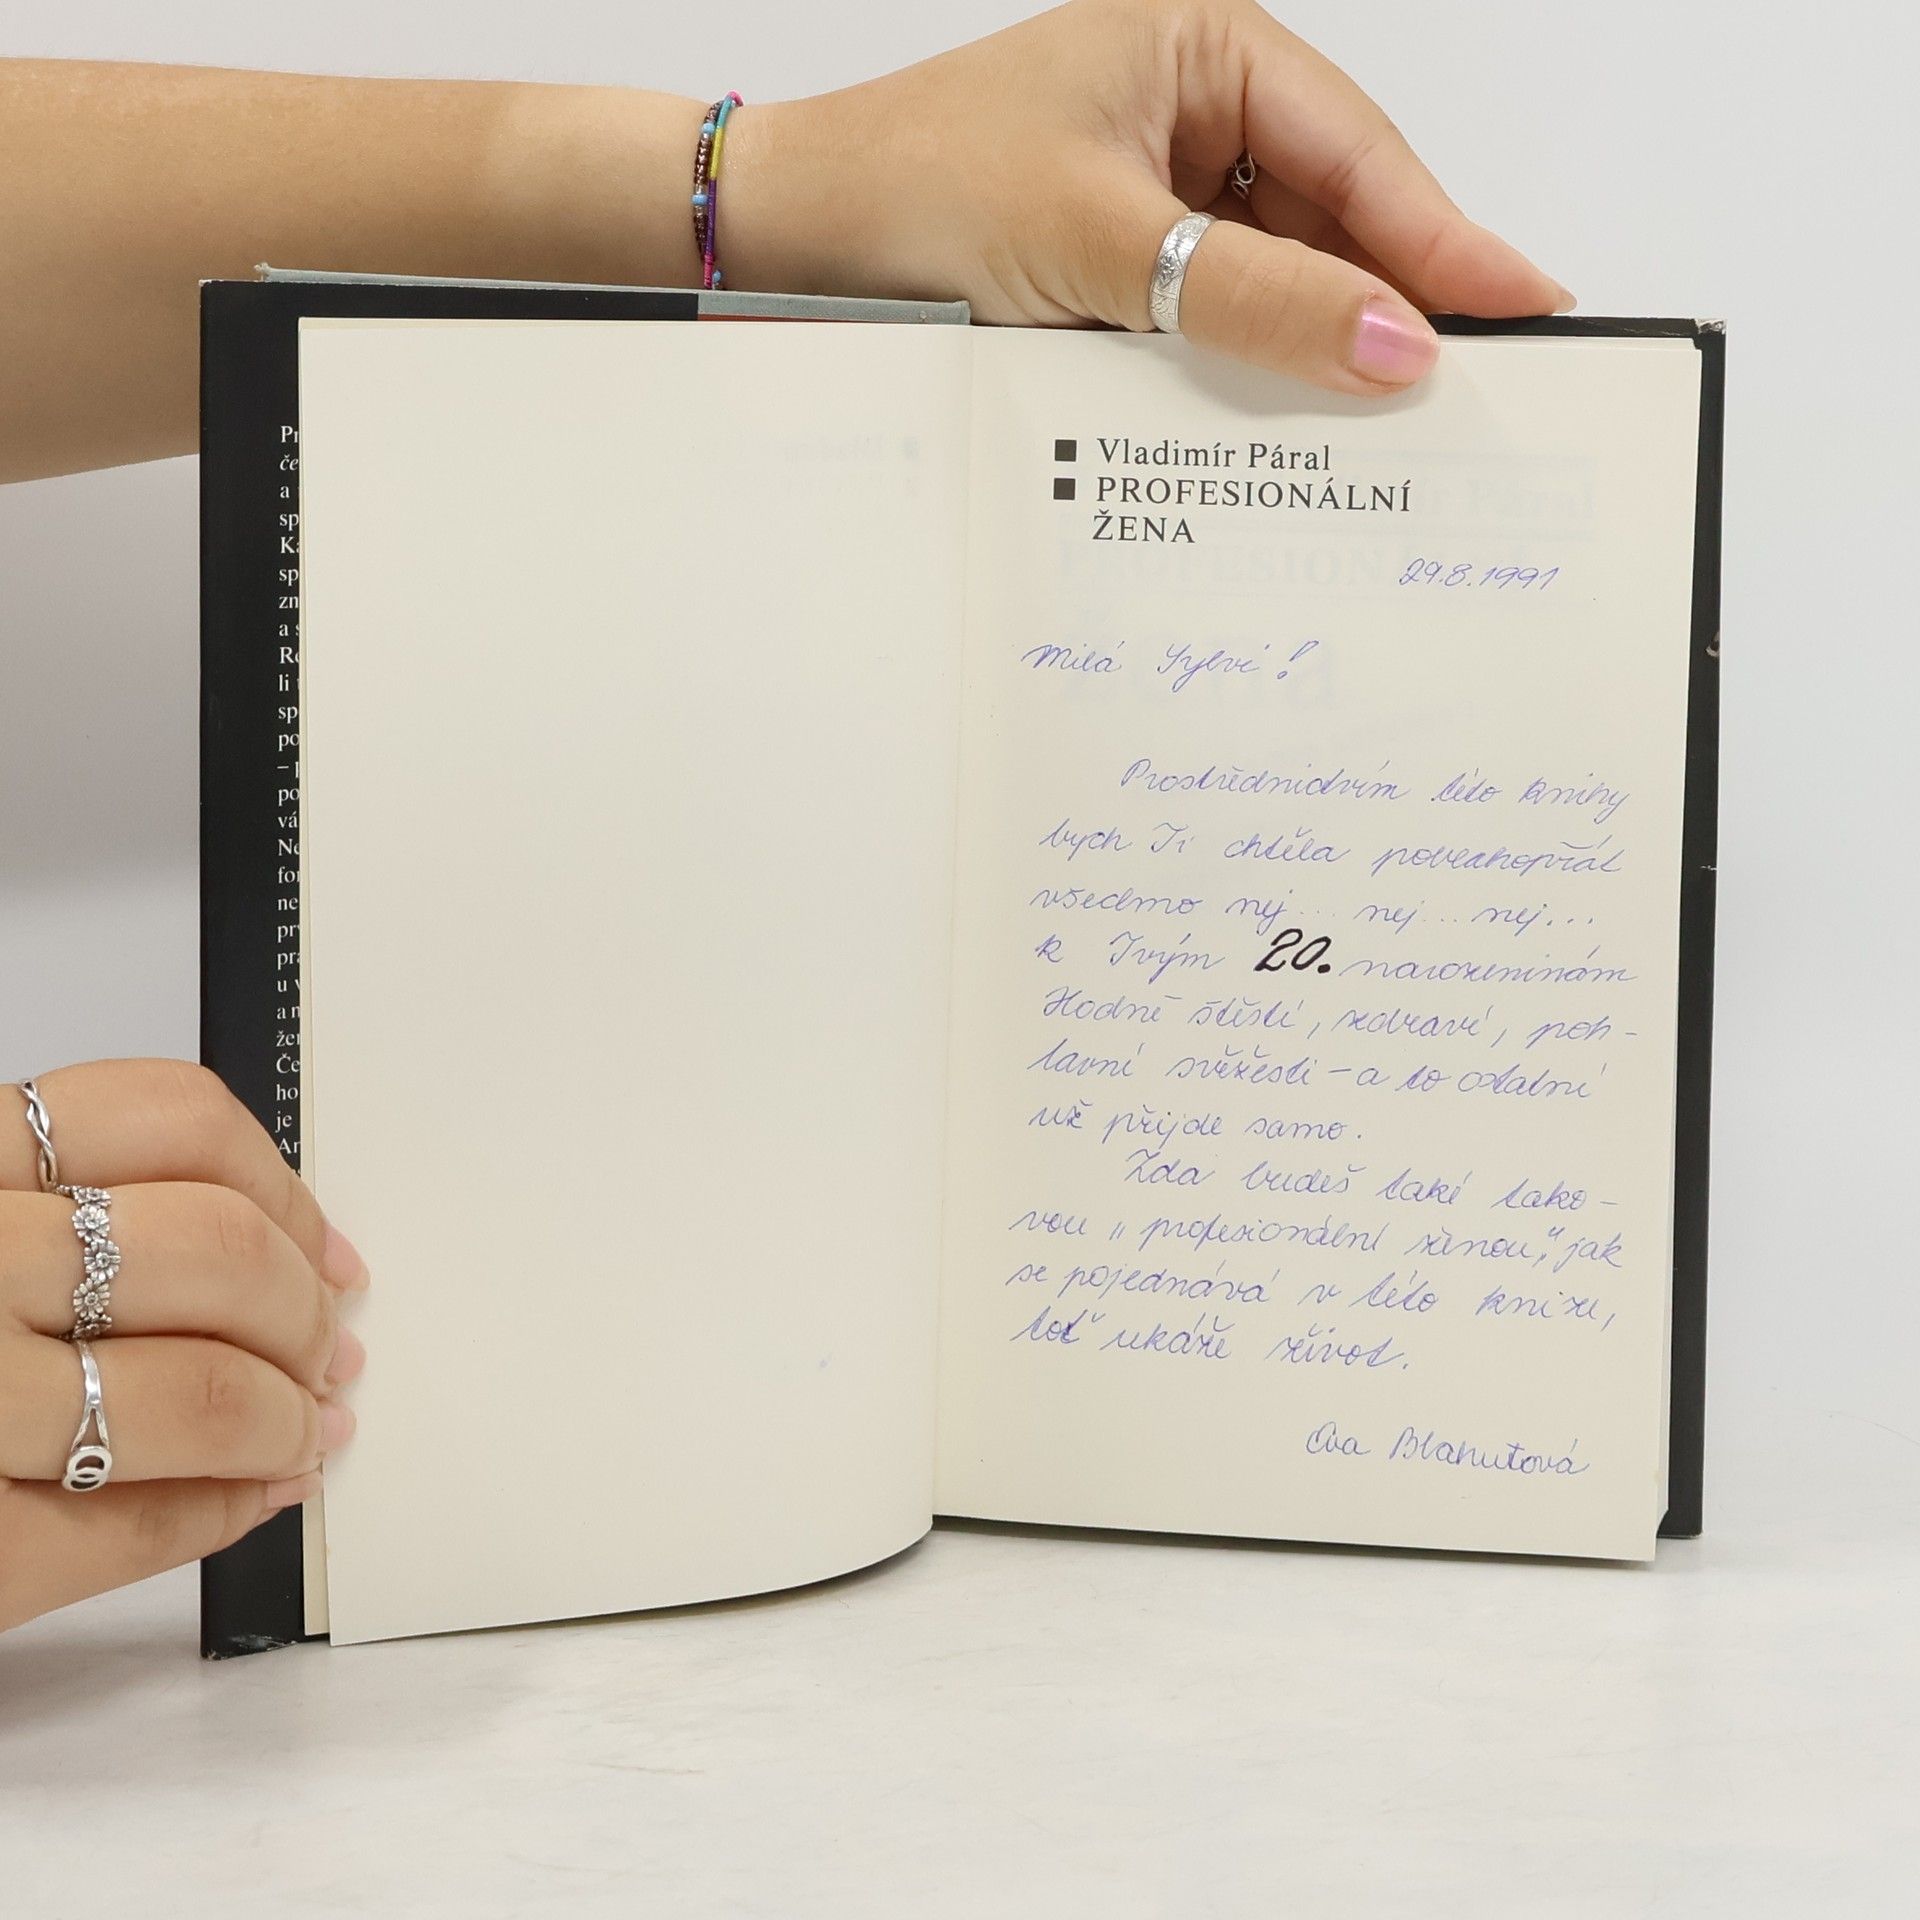 Pr
če
a
sp
Ka
sp
zn
a s
Re
li t
sp
po
– p
po
vá
Ne
for
ne
prv
pra
u v
a n
žen
Če
ho
je
An
■ Vladimír Páral
■ PROFESIONÁLNÍ
ŽENA
29.8.1991
Milá Sylvi!
Prostřednictvím této knihy
bych Ti chtěla poblahopřát
všechno nej... nej... nej...
k Tvým 20. narozeninám
Hodně štěstí, zdraví, poh-
lavní svěžesti – a to ostatní
už přijde samo.
Zda budeš také tako-
vou „profesionální ženou“, jak
se pojednává v této knize,
toť ukáže život.
Eva Blahutová